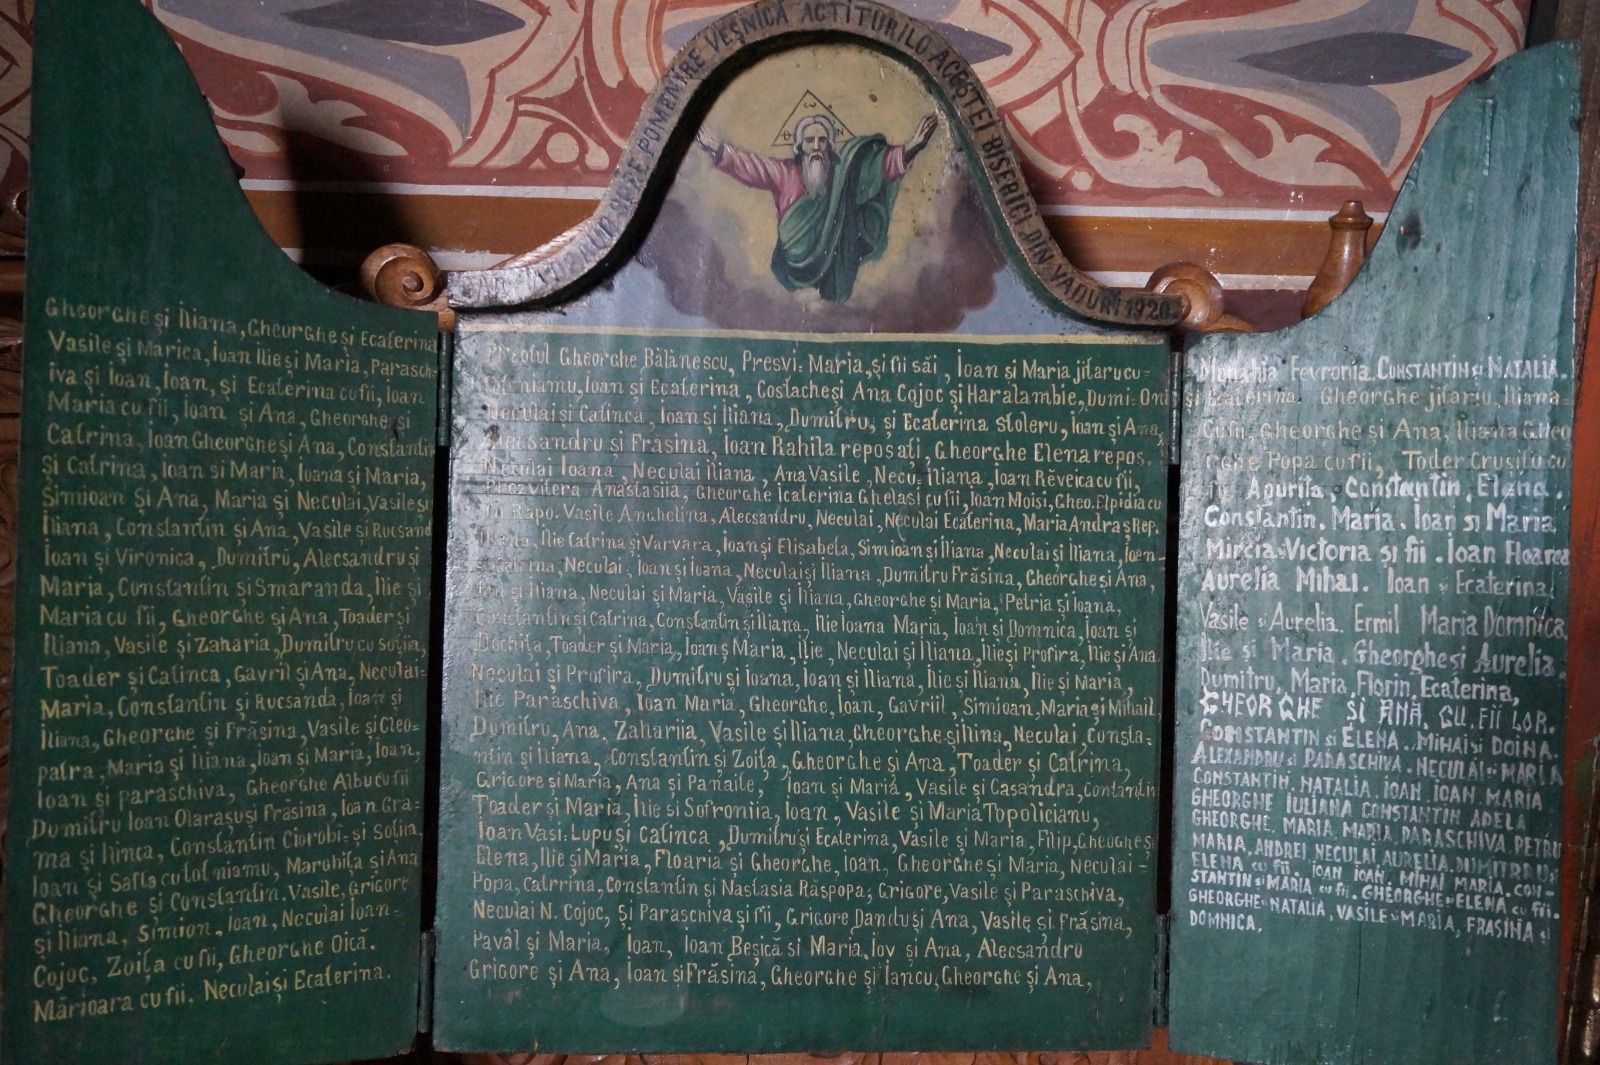 POMENIRE VEȘNICĂ ACTITURILO ACESTEI BISERICI DIN VADURI 1920.
Gheorghe și Iliana, Gheorghe și Ecaterina
Vasile și Marica, Ioan Ilie și Maria, Parasch-
iva și Ioan, Ioan, și Ecaterina cu fii, Ioan
Maria cu fii, Ioan și Ana, Gheorghe și
Catrina, Ioan Gheorghe și Ana, Constantin
și Catrina, Ioan și Maria, Ioana și Maria,
Simioan și Ana, Maria și Neculai, Vasile și
Iliana, Constantin și Ana, Vasile și Rucsand
Ioan și Vironica, Dumitru, Alecsandru și
Maria, Constantin și Smaranda, Ilie și
Maria cu fii, Gheorghe și Ana, Toader și
Iliana, Vasile și Zaharia, Dumitru cu soțiia,
Toader și Catinca, Gavril și Ana, Neculai-
Maria, Constantin și Rucsanda, Ioan și
Iliana, Gheorghe și Frăsina, Vasile și Cleo-
patra, Maria și Iliana, Ioan și Maria, Ioan,
Ioan și paraschiva, Gheorghe Albu cu fii
Dumitru Ioan Olarașu și Frăsina, Ioan Gra-
ma și Ilinca, Constantin Ciorobi- și Soțiia,
Ioan și Safta cu tot niamu, Marghița și Ana
Gheorghe și Constantin. Vasile, Grigore
și Iliana, Simion, Ioan, Neculai Ioan=
Cojoc, Zoița cu fii, Gheorghe Oică.
Mărioara cu fii. Neculai și Ecaterina.
Preotul Gheorghe Bălănescu, Presvi: Maria, și fii săi, Ioan și Maria jitaru cu=
tot niamu, Ioan și Ecaterina, Costache și Ana Cojoc și Haralambie, Dumi:
Neculai și Catinca, Ioan și Iliana, Dumitru, și Ecaterina stoleru, Ioan și Ana,
Alecsandru și Frăsina, Ioan Rahila reposați, Gheorghe Elena repos.
Neculai Ioana, Neculai Iliana, Ana Vasile, Necu: Iliana, Ioan Răveica cu fii,
Prezvitera Anastasiia, Gheorghe icaterina Ghelasi cu fii, Ioan Moisi, Gheo. Elpidia cu
fii Rapo. Vasile Anghelina, Alecsandru, Neculai, Neculai Ecaterina, Maria Andra ș Rep.
Ilie Catrina și Varvara, Ioan și Elisabeta, Simioan și Iliana, Neculai și Iliana, Ioan-
Neculai, Ioan și Iuana, Neculai și Iliana, Dumitru Frăsina, Gheorghe și Ana,
și Iliana, Neculai și Maria, Vasile și Iliana, Gheorghe și Maria, Petria și Ioana,
Constantin și Catrina, Constantin și Iliana, Ilie Ioana Maria, Ioan și Domnica, Ioan și
Dochița, Toader și Maria, Ioan ș Maria, Ilie, Neculai și Iliana, Ilie și Profira, Ilie și Ana.
Neculai și Profira, Dumitru și Ioana, Ioan și Iliana, Ilie și Iliana, Ilie și Maria,
Ilie Paraschiva, Ioan Maria, Gheorghe, Ioan, Gavriil, Simioan, Maria și Mihail
Dumitru, Ana, Zahariia, Vasile și Iliana, Gheorghe și Ilina, Neculai, Consta=
ntin și Iliana, Constantin și Zoița, Gheorghe și Ana, Toader și Catrina,
Grigore și Maria, Ana și Panaite, Ioan și Maria, Vasile și Casandra, Contantin
Toader și Maria, Ilie și Sofroniia, Ioan, Vasile și Maria Topolicianu,
Ioan Vasi. Lupu și Catinca, Dumitru și Ecaterina, Vasile și Maria, Filip, Gheughe și
Elena, Ilie și Maria, Floaria și Gheorghe, Ioan, Gheorghe și Maria, Neculai-
Popa, Catrrina, Constantin și Nastasia Răspopa; Grigore, Vasile și Paraschiva,
Neculai N. Cojoc, și Paraschiva și fii, Grigore Dandu și Ana, Vasile și Frăsina,
Pavăl și Maria, Ioan, Ioan Beșică si Maria, Iov și Ana, Alecsandru
Grigore și Ana, Ioan și Frăsina, Gheorghe și Iancu, Gheorghe și Ana,
Monahia Fevronia. CONSTANTIN și NATALIA.
și Ecaterina. Gheorghe jitariu, Iliana=
Cu fii, Gheorghe si Ana, Iliana Gheo
rghe Popa cu fii, Toder Crușitu cu
fii Agurița, Constantin, Elena.
Constantin. Maria. Ioan si Maria
Mircia Victoria și fii. Ioan Floarea
Aurelia Mihai. Ioan și Ecaterina
Vasile și Aurelia. Ermil Maria Domnica
Ilie și Maria. Gheorghe și Aurelia.
Dumitru, Maria, Florin, Ecaterina,
GHEORGHE ȘI ANĂ, CU, FII LOR.
CONSTANTIN și ELENA. MIHAI și DOINA.
ALEXANDRU și PARASCHIVA. NECULAI și MARIA
CONSTANTIN, NATALIA. IOAN, IOAN MARIA
GHEORGHE IULIANA CONSTANTIN ADELA
GHEORGHE. MARIA. MARIA PARASCHIVA. PETRU
MARIA, ANDREI, NECULAI AURELIA. DUMITRU și
ELENA cu fii. IOAN IOAN. MIHAI MARIA. CON-
STANTIN și MARIA cu fii. GHEORGHE și ELENA cu fii.
GHEORGHE și NATALIA, VASILE și MARIA, FRASINA și
DOMNICA.